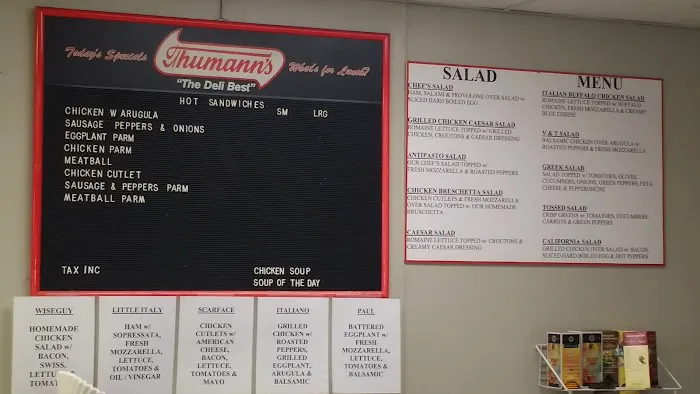 Today's Specials
Thumann's
What's for Lunch?
"The Deli Best"
HOT SANDWICHES
SM LRG
CHICKEN W ARUGULA
SAUSAGE PEPPERS & ONIONS
EGGPLANT PARM
CHICKEN PARM
MEATBALL
CHICKEN CUTLET
SAUSAGE & PEPPERS PARM
MEATBALL PARM
TAX INC
CHICKEN SOUP
SOUP OF THE DAY
SALAD MENU
CHEF'S SALAD
HAM, SALAMI & PROVOLONE OVER SALAD w/
SLICED HARD BOILED EGG
GRILLED CHICKEN CAESAR SALAD
ROMAINE LETTUCE TOPPED w/ GRILLED
CHICKEN, CROUTONS & CAESAR DRESSING
ANTIPASTO SALAD
OUR CHEF'S SALAD TOPPED w/
FRESH MOZZARELLA & ROASTED PEPPERS
CHICKEN BRUSCHETTA SALAD
CHICKEN CUTLETS & FRESH MOZZARELLA
OVER SALAD TOPPED w/ OUR HOMEMADE
BRUSCHETTA
CAESAR SALAD
ROMAINE LETTUCE TOPPED w/ CROUTONS &
CREAMY CAESAR DRESSING
ITALIAN BUFFALO CHICKEN SALAD
ROMAINE LETTUCE TOPPED w/ BUFFALO
CHICKEN, FRESH MOZZARELLA & CREAMY
BLUE CHEESE
V & T SALAD
BALSAMIC CHICKEN OVER ARUGULA w/
ROASTED PEPPERS & FRESH MOZZARELLA
GREEK SALAD
SALAD TOPPED w/ TOMATOES, OLIVES,
CUCUMBERS, ONIONS, GREEN PEPPERS, FETA
CHEESE & PEPPERONCINI
TOSSED SALAD
CRISP GREENS w/ TOMATOES, CUCUMBERS,
CARROTS & GREEN PEPPERS
CALIFORNIA SALAD
GRILLED CHICKEN OVER SALAD w/ BACON,
SLICED HARD BOILED EGG & HOT PEPPERS
WISEGUY
HOMEMADE
CHICKEN
SALAD w/
BACON,
SWISS,
LETTUCE &
TOMATO
LITTLE ITALY
HAM w/
SOPRESSATA,
FRESH
MOZZARELLA,
LETTUCE,
TOMATOES &
OIL / VINEGAR
SCARFACE
CHICKEN
CUTLETS w/
AMERICAN
CHEESE,
BACON,
LETTUCE,
TOMATOES &
MAYO
ITALIANO
GRILLED
CHICKEN w/
ROASTED
PEPPERS,
GRILLED
EGGPLANT,
ARUGULA &
BALSAMIC
PAUL
BATTERED
EGGPLANT w/
FRESH
MOZZARELLA,
LETTUCE,
TOMATOES &
BALSAMIC